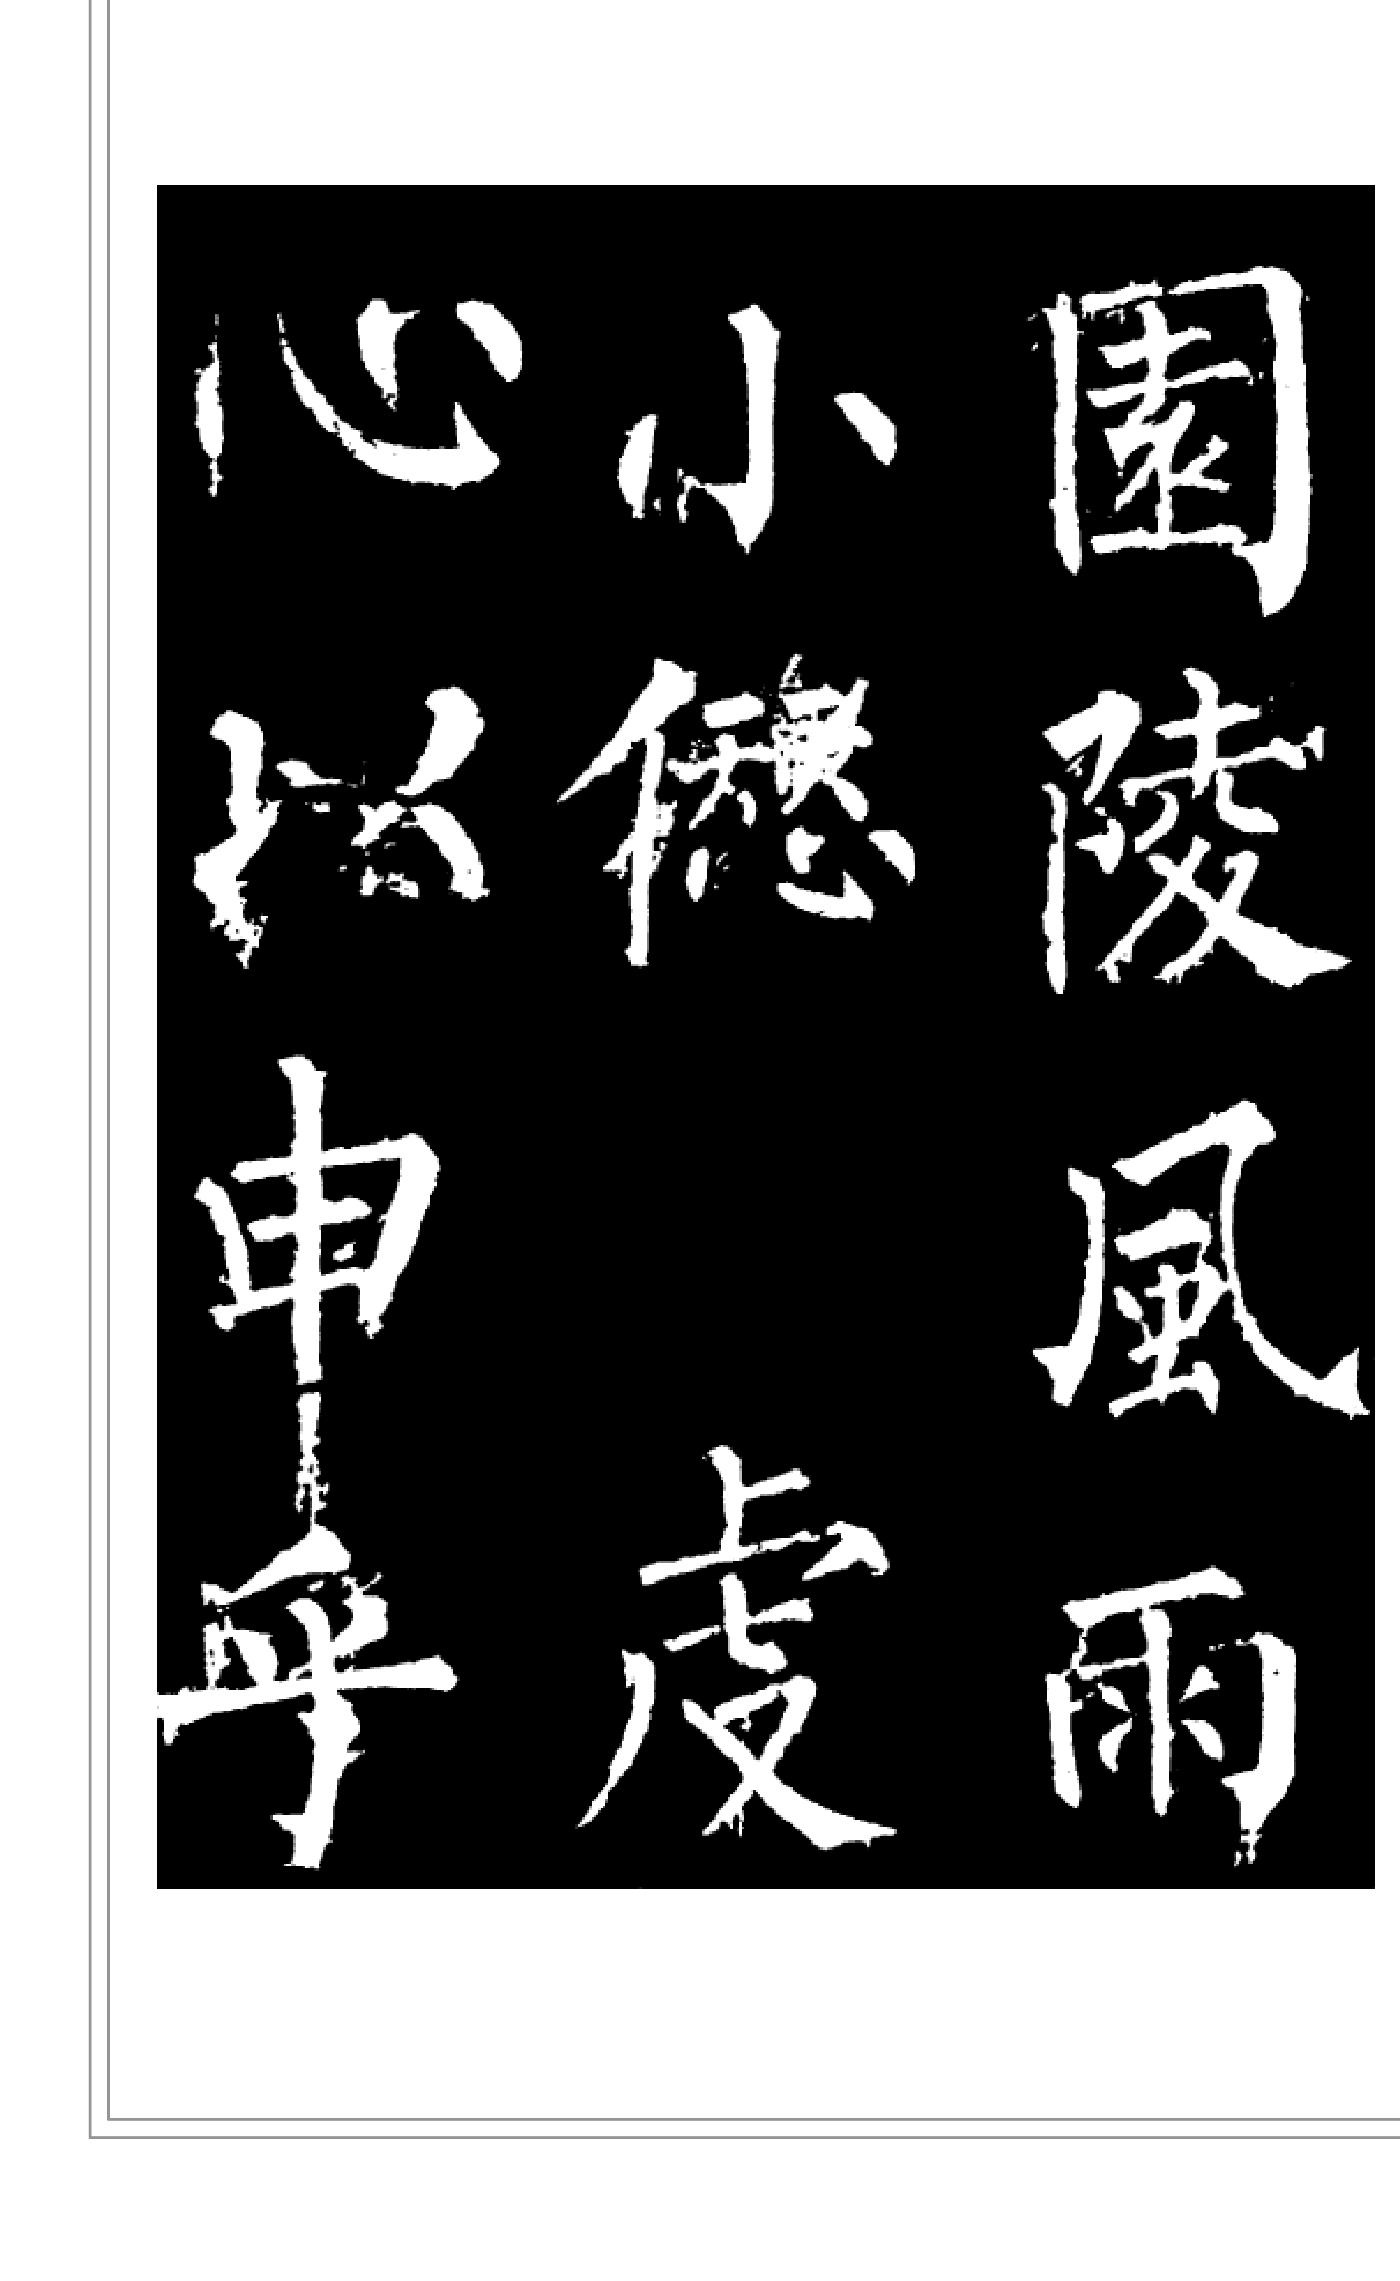 園陵風雨
小 虔
心以申乎